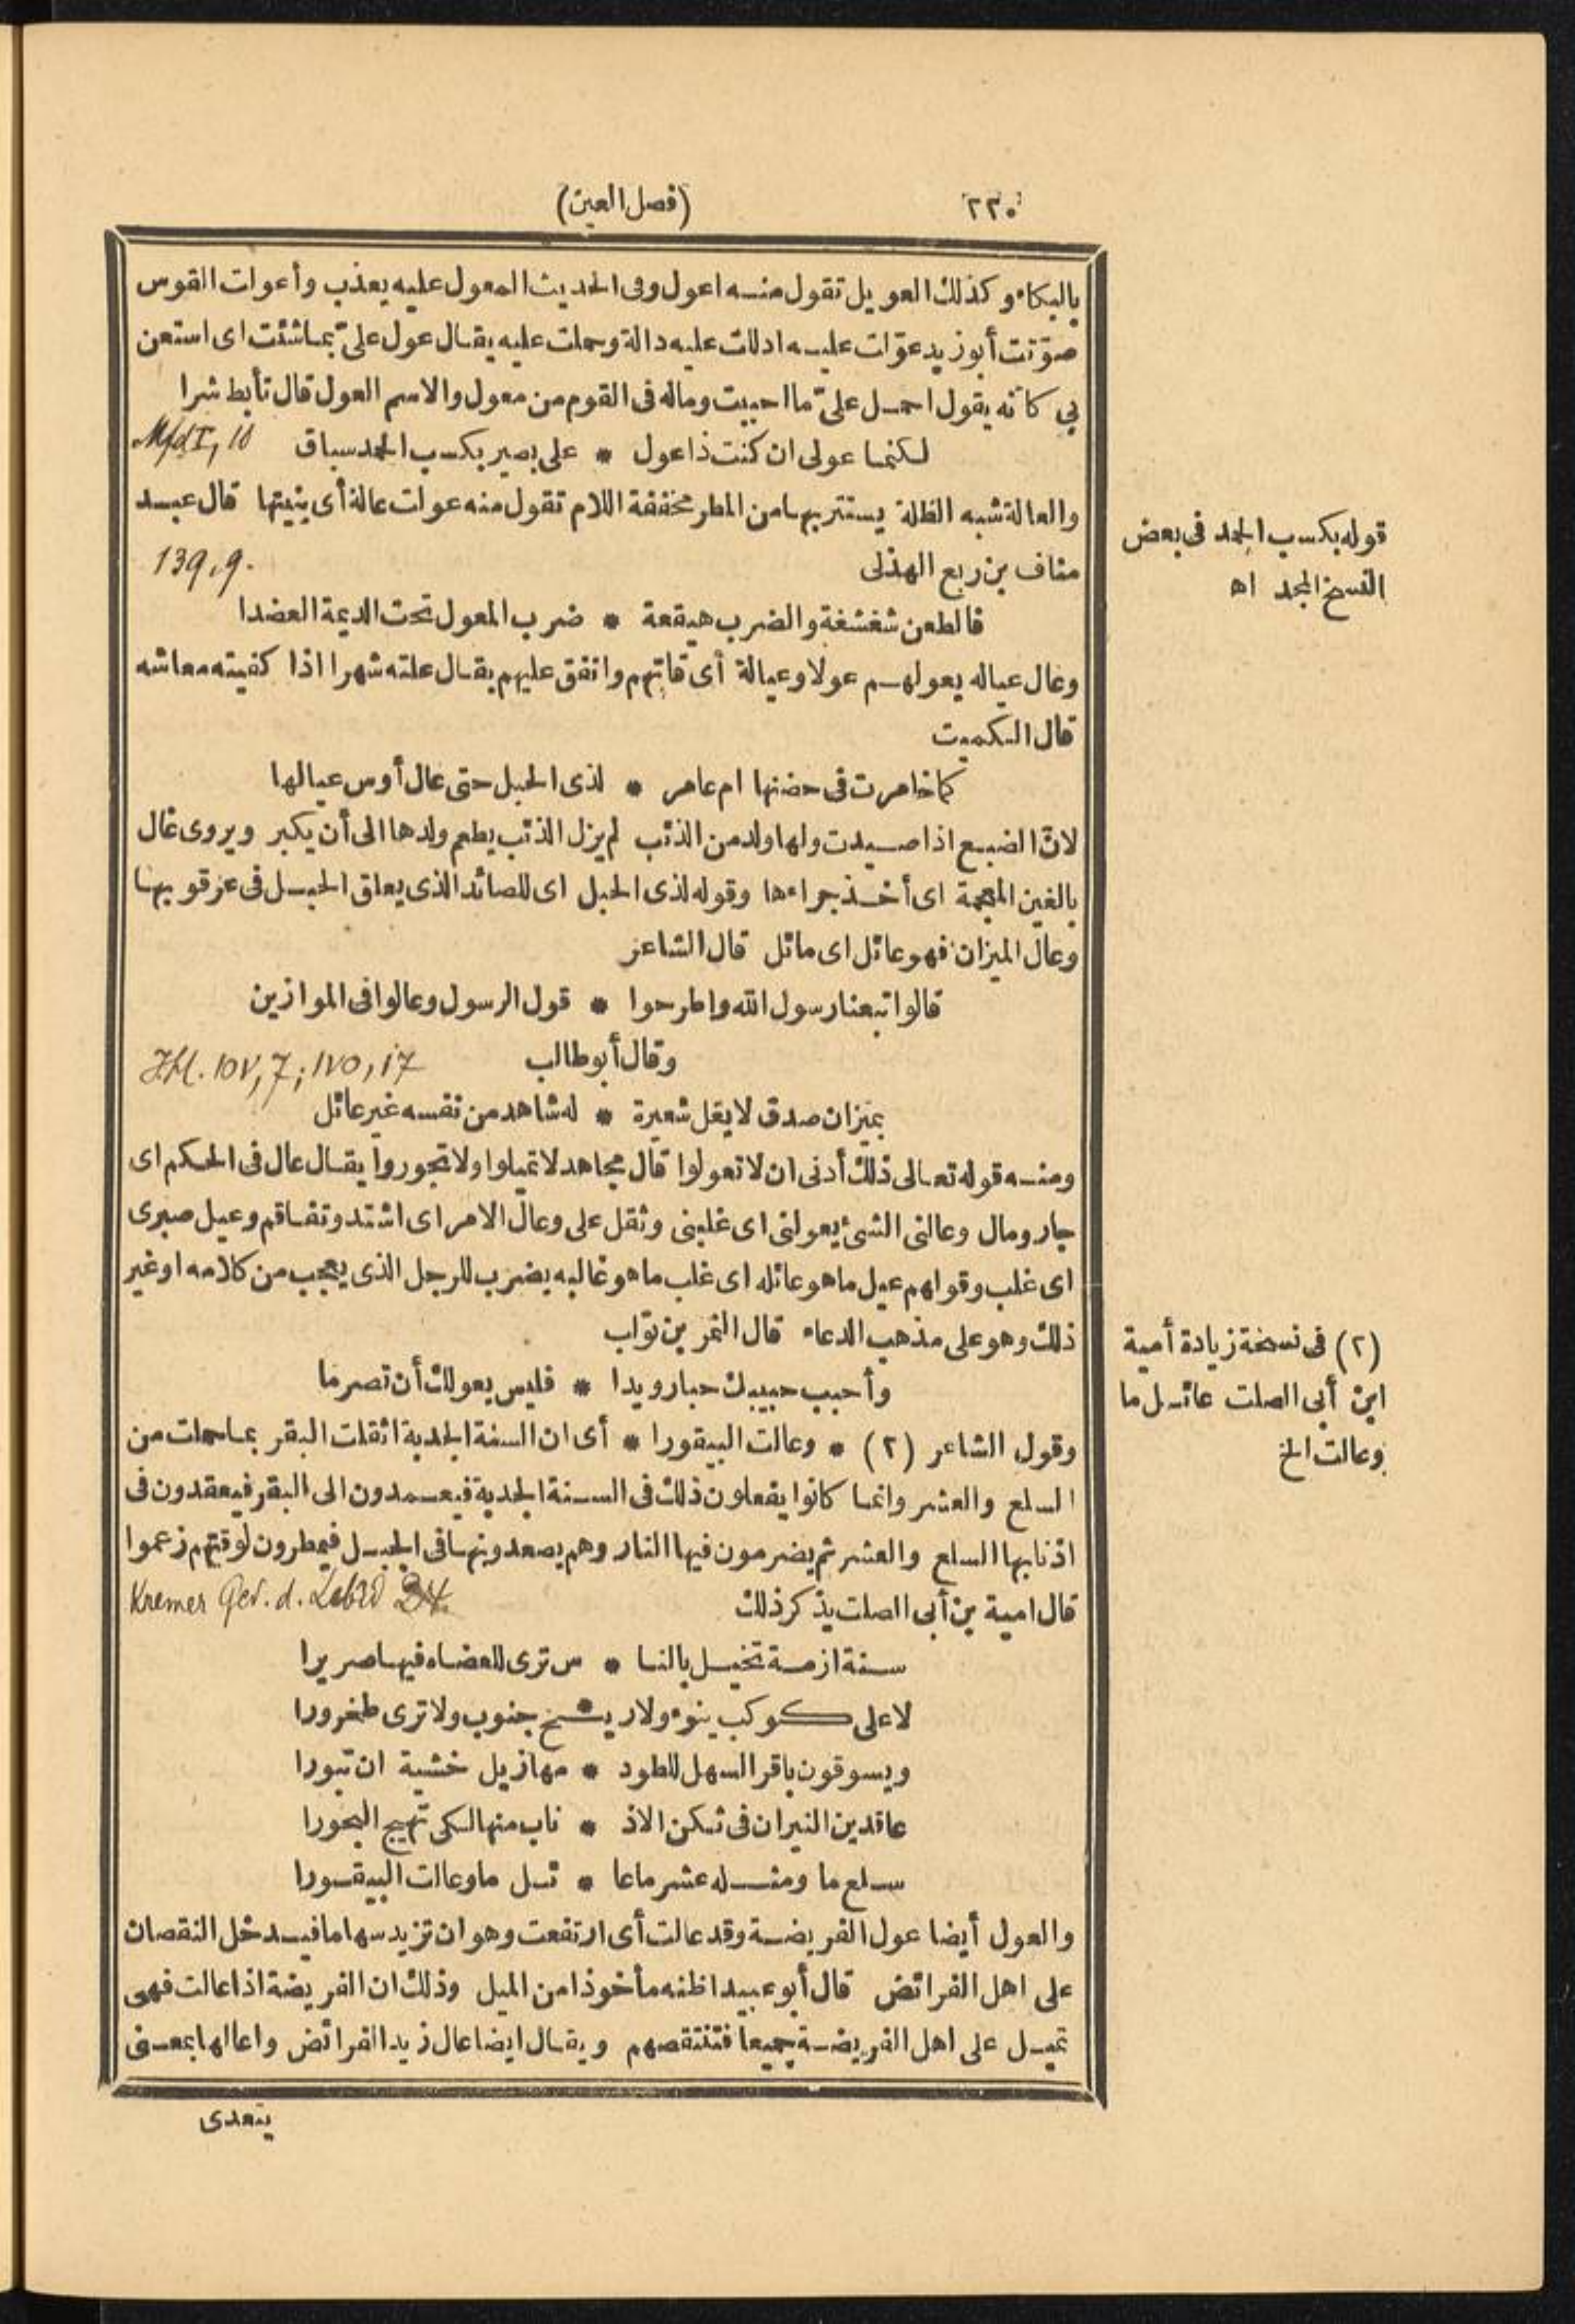 ٢٣٠
(فصل العين)
بالبكاء وكذلك العويل تقول منه اعول وفى الحديث المعول عليه يعذب وأعولت القوس
صوّتت أبو زيد عوّلت عليه ادللت عليه دالة وحملت عليه يقال عوّل علىّ بما شئت اى استعن
بى كأنه يقول احمل علىّ ما احببت وماله فى القوم من معول والاسم العول قال تأبط شرا
لكنما عولى ان كنت ذا عول * على بصير بكسب الحمد سباق
والعالة شبه الظلة يستتر بها من المطر مخففة اللام تقول منه عولت عالة أى بنيتها قال عبد
139,9.
مناف بن ربع الهذلى
فالطعن شغشغة والضرب هيقعة * ضرب المعول تحت الديمة العضدا
وعال عياله يعولهم عولا وعيالة أى قاتهم وانفق عليهم يقال علته شهرا اذا كفيته معاشه
قال الكميت
كما خامرت فى حضنها ام عامر * لذى الحبل حتى عال أوس عيالها
لانّ الضبع اذا صيدت ولها ولد من الذئب لم يزل الذئب يطعم ولدها الى أن يكبر ويروى غال
بالغين المعجمة اى أخذ جراءها وقوله لذى الحبل اى للصائد الذى يعلق الحبل فى عرقوبها
وعال الميزان فهو عائل اى مائل قال الشاعر
قالوا تبعنا رسول الله واطرحوا * قول الرسول وعالوا فى الموازين
وقال أبو طالب
بميزان صدق لا يغل شعيرة * له شاهد من نفسه غير عائل
ومنه قوله تعالى ذلك أدنى ان لا تعولوا قال مجاهد لا تميلوا ولا تجوروا يقال عال فى الحكم اى
جار ومال وعالنى الشئ يعولنى اى غلبنى وثقل على وعال الامر اى اشتد وتفاقم وعيل صبرى
اى غلب وقولهم عيل ما هو عائله اى غلب ما هو غالبه يضرب للرجل الذى يعجب من كلامه او غير
ذلك وهو على مذهب الدعاء قال النمر بن تولب
وأحبب حبيبك حبا رويدا * فليس يعولك أن تصرما
وقول الشاعر (٢) * وعالت البيقورا * أى ان السنة الجدبة اثقلت البقر بما حملت من
السلع والعشر وانما كانوا يفعلون ذلك فى السنة الجدبة فيعمدون الى البقر فيعقدون فى
اذنابها السلع والعشر ثم يضرمون فيها النار وهم يصعدونها فى الجبل فيمطرون لوقتهم زعموا
قال امية بن أبى الصلت يذكر ذلك
Kremer Ged. d. Lebîd 34.
سنة ازمة تخيل بالنا * س ترى للعضاه فيها صريرا
لا على كوكب ينوء ولا ريـ * ـح جنوب ولا ترى طخرورا
ويسوقون باقر السهل للطود * مهازيل خشية ان تبورا
عاقدين النيران فى ثكن الاذ * ناب منها لكى تهيج البحورا
سلع ما ومثله عشر ما عا * ئل ما وعالت البيقورا
والعول أيضا عول الفريضة وقد عالت أى ارتفعت وهو ان تزيد سهاما فيدخل النقصان
على اهل الفرائض قال أبو عبيد اظنه مأخوذا من الميل وذلك ان الفريضة اذا عالت فهى
تميل على اهل الفريضة جميعا فتنتقصهم ويقال ايضا عال زيد الفرائض واعالها بمعنى
يتعدى
قوله بكسب الحمد فى بعض
النسخ المجد اه
(٢) فى نسخة زيادة أمية
ابن أبى الصلت عائل ما
وعالت الخ